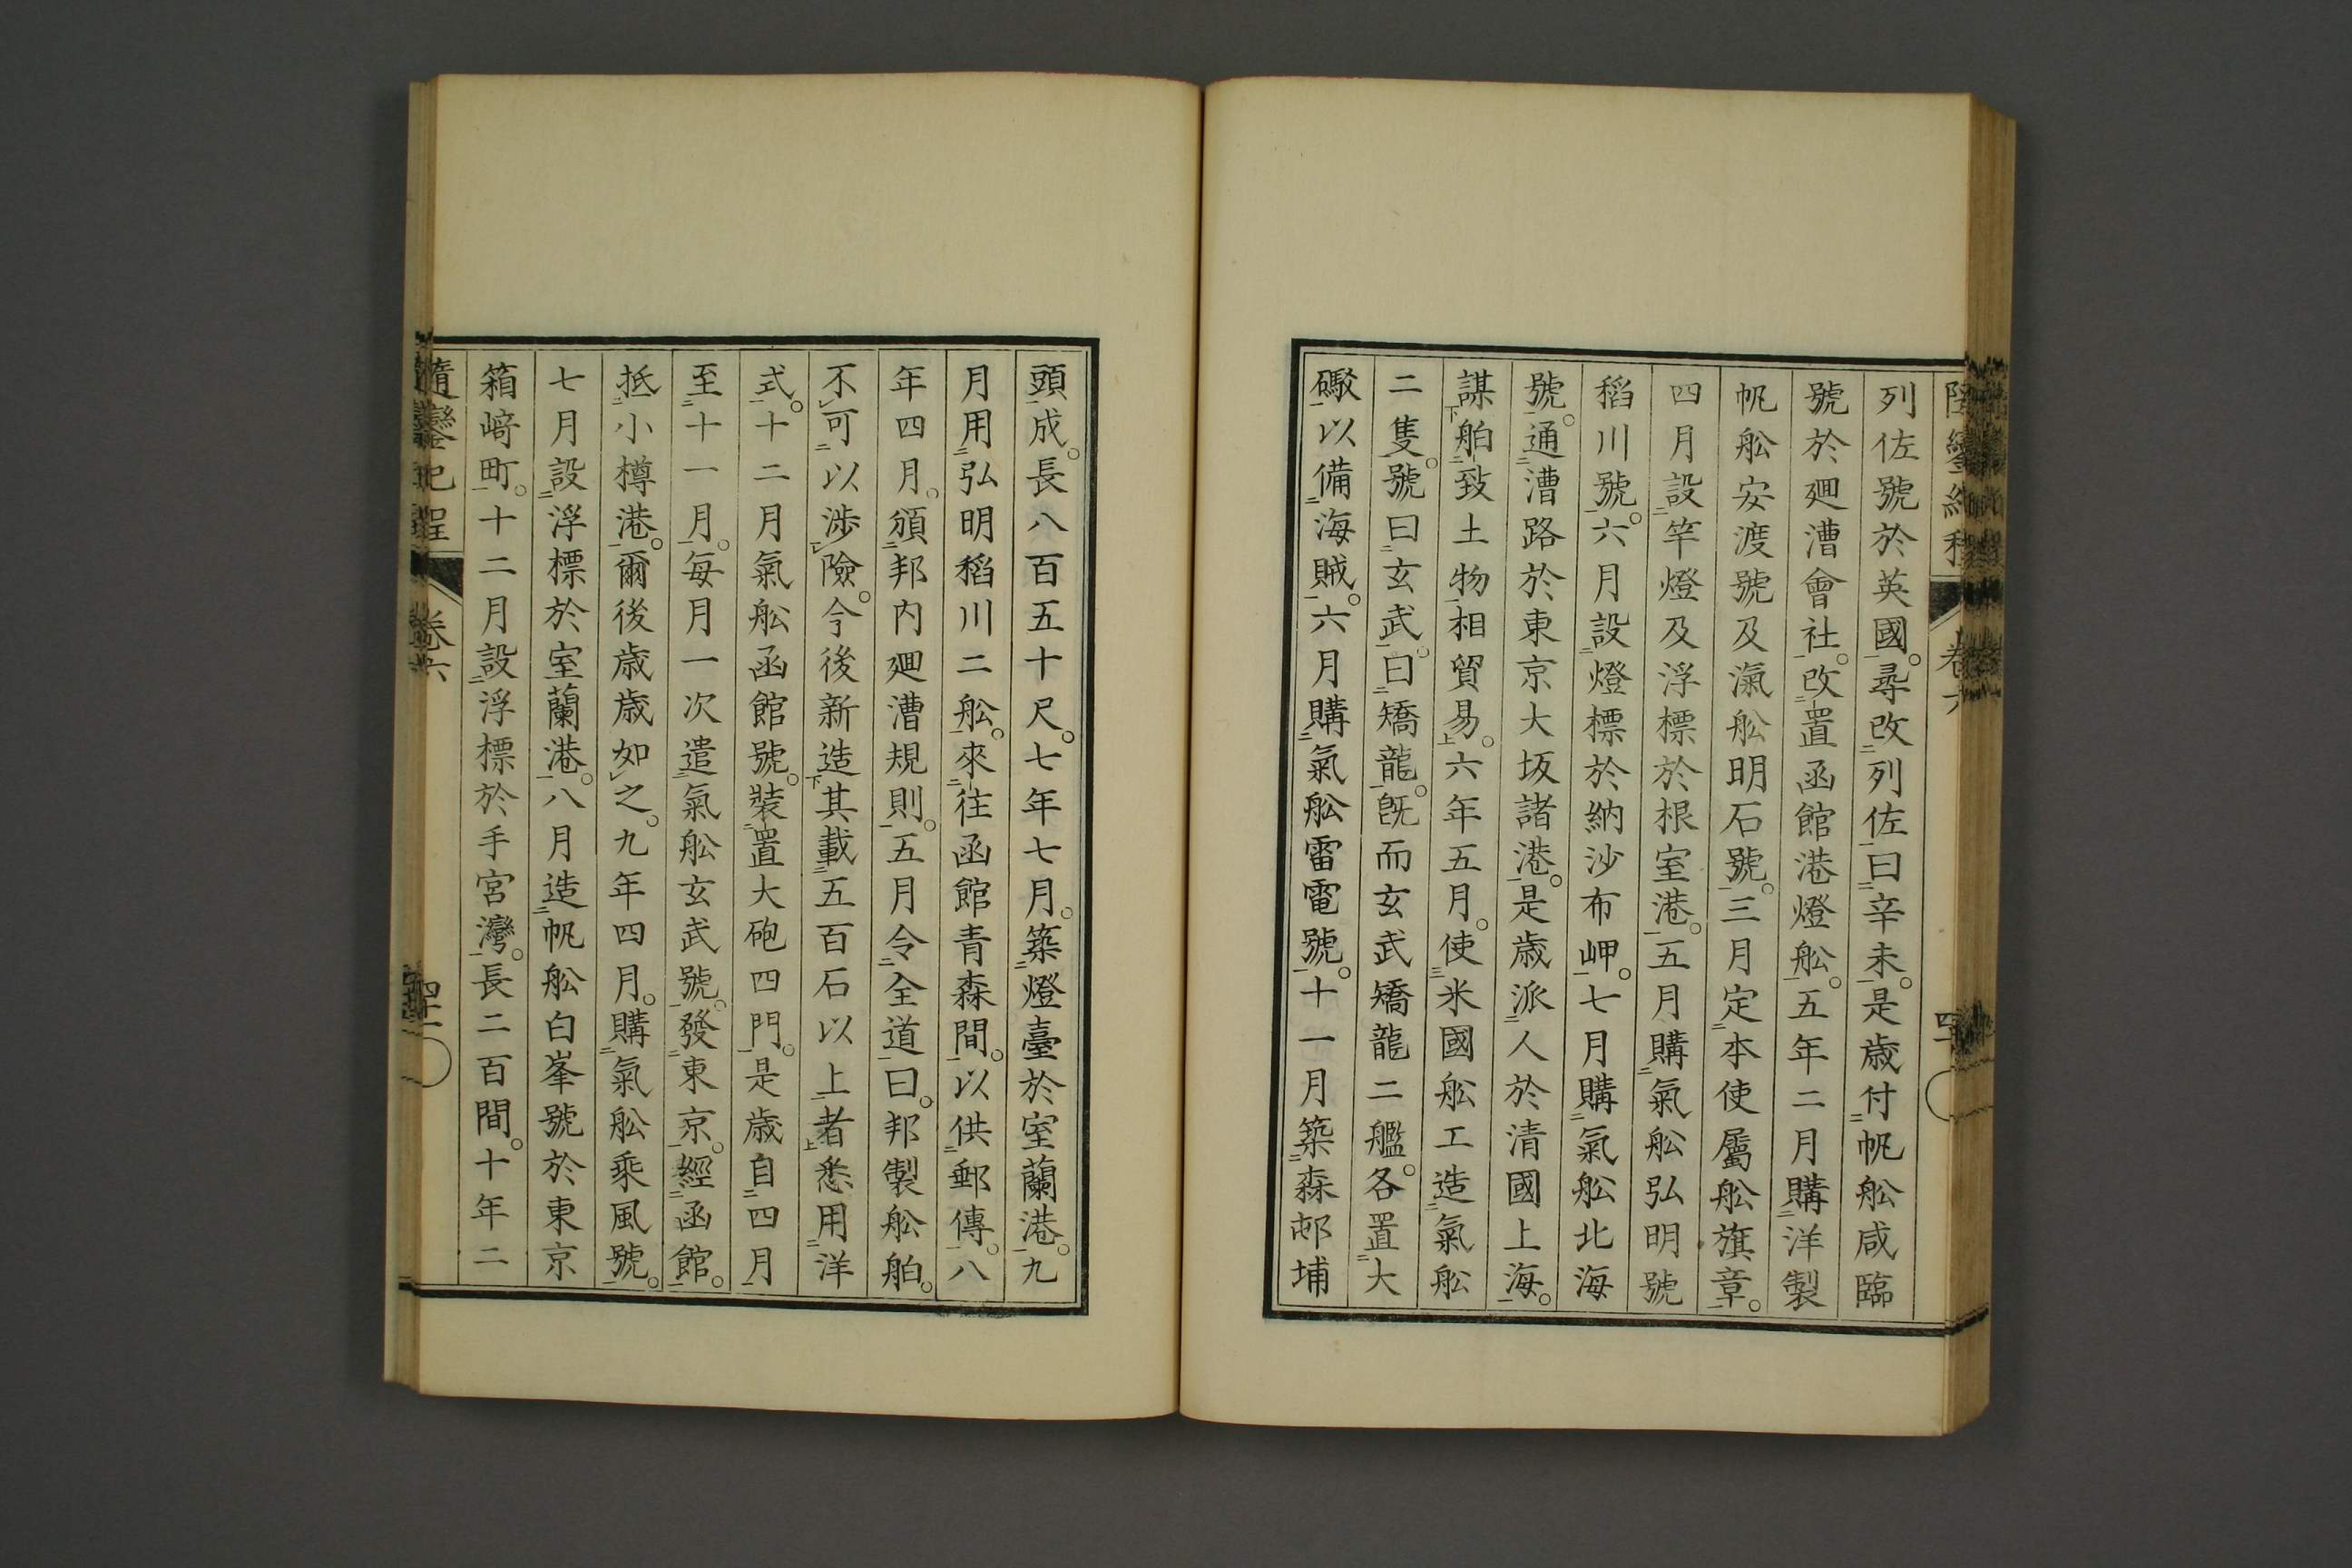 列佐號於英國。尋改列佐曰辛未。是歳付帆舩咸臨
號於廻漕會社。改置函館港燈舩。五年二月購洋製
帆舩安渡號及滊舩明石號。三月定本使屬舩旗章。
四月設竿燈及浮標於根室港。五月購氣舩弘明號
稻川號。六月設燈標於納沙布岬。七月購氣舩北海
號。通漕路於東京大坂諸港。是歳派人於清國上海。
謀舶致土物相貿易。六年五月。使米國舩工造氣舩
二隻。號曰玄武。曰矯龍。既而玄武矯龍二艦。各置大
礮以備海賊。六月購氣舩雷電號。十一月築森邨埔
頭成。長八百五十尺。七年七月。築燈臺於室蘭港。九
月用弘明稻川二舩。來往函館青森間。以供郵傳。八
年四月。頒邦内廻漕規則。五月令全道曰。邦製舩舶。
不可以渉險。今後新造其載五百石以上者悉用洋
式。十二月氣舩函館號。裝置大砲四門。是歳自四月
至十一月。毎月一次遣氣舩玄武號。發東京。經函館。
抵小樽港。爾後歳歳如之。九年四月。購氣舩乘風號。
七月設浮標於室蘭港。八月造帆舩白峯號於東京
箱﨑町。十二月設浮標於手宮灣。長二百間。十年二
隨鑾紀程 卷六